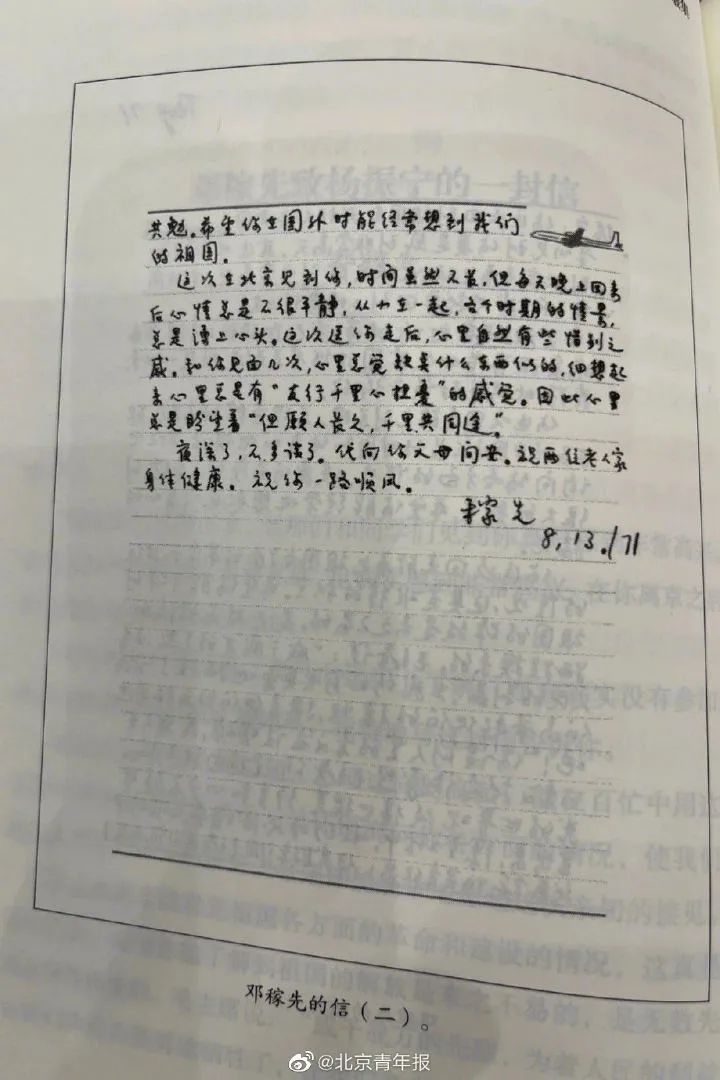 共勉。希望你在国外时能经常想到我们
的祖国。
这次在北京见到你,时间虽然不长,但每天晚上回来
后心情总是不很平静,从小在一起,各个时期的情景,
总是涌上心头。这次送你走后,心里自然有些惜别之
感。和你见面几次,心里总觉缺点什么东西似的,细想起
来心里总是有“友行千里心担憂”的感觉。因此心里
总是盼望着“但愿人长久,千里共同途”。
夜深了,不多谈了。代向你父母问安。祝两位老人家
身体健康。祝你一路顺风。
稼先
8.13./71
邓稼先的信(二)。
@北京青年报